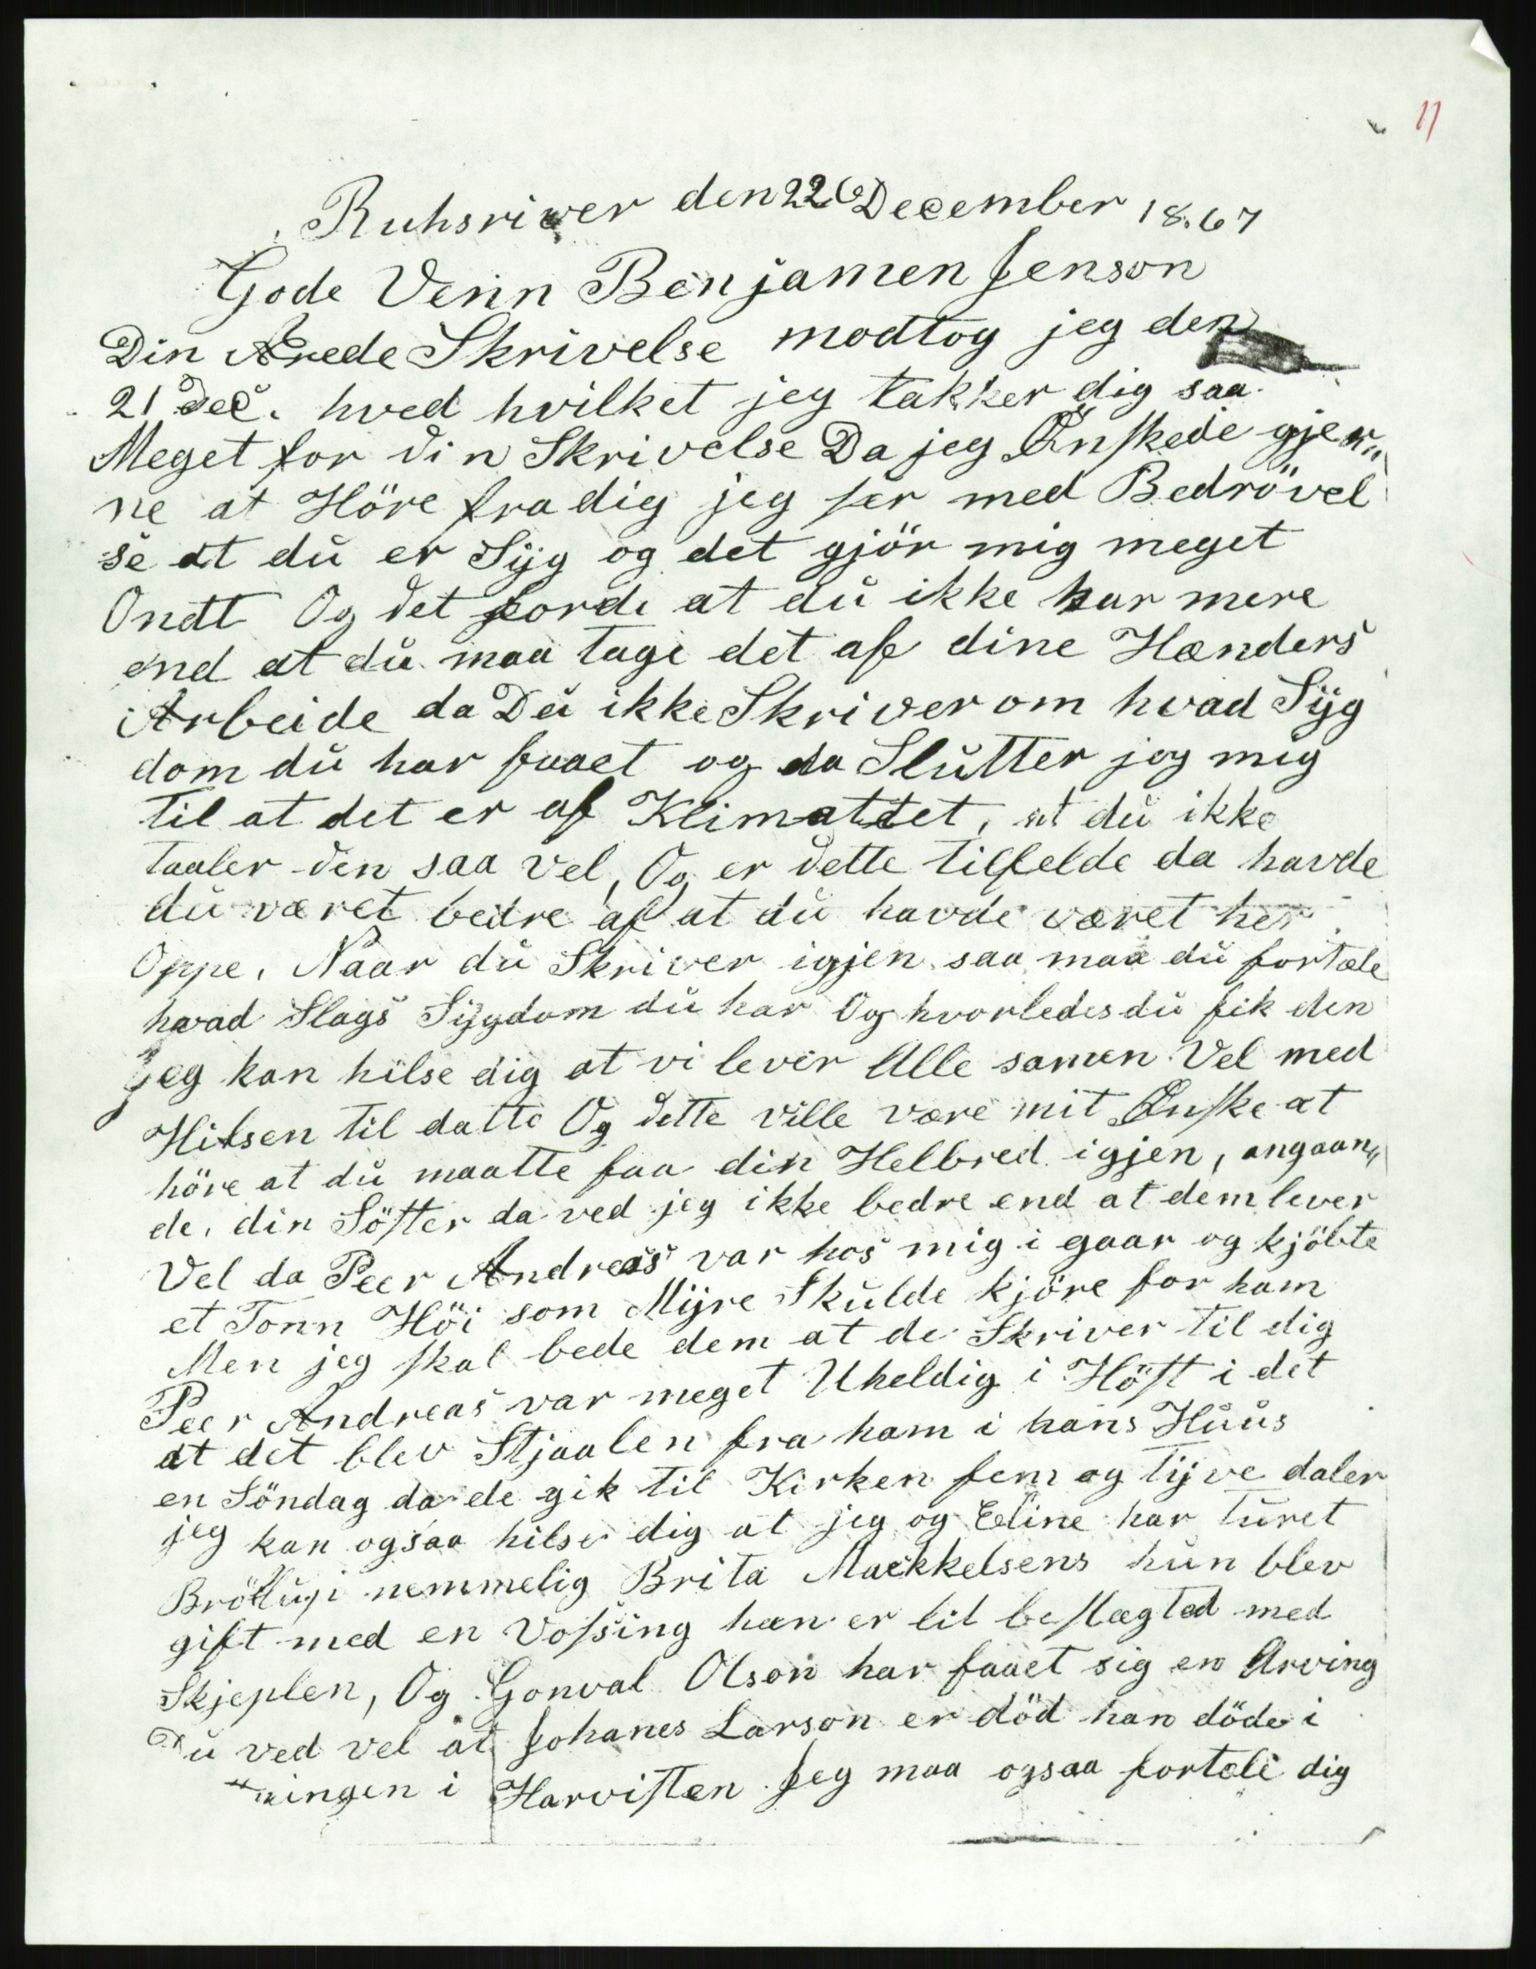 11
Ruhsriver den 22 December 1867
Gode Venn Benjamen Jenson
Din Ærede Skrivelse modtog jeg den
21 Dec. hved hvilket jeg takker dig saa
Meget for din Skrivelse Da jeg Ønskede gjer„
ne at Höre fra dig jeg ser med Bedrövel
se at dŭ er Syg og det gjör mig meget
Ondt Og det fordi at dŭ ikke har mere
end at dŭ maa tage det af dine Hænders
Arbeide da Dŭ ikke Skriver om hvad Syg
dom dŭ har faaet og da Slŭtter jeg mig
til at det er af Klimattet, at dŭ ikke
taaler den saa vel, Og er dette tilfelde da havde
dŭ været bedre af at dŭ havde været her
Oppe. Naar dŭ Skriver igjen saa maa dŭ fortæle
hvad Slags Sygdom dŭ har Og hvorledes dŭ fik den
Jeg kan hilse dig at vi lever Alle samen Vel med
Hilsen til datto Og dette ville være mit Ønske at
höre at dŭ maatte faa din Helbred igjen, angaan„
de, din Söster da ved jeg ikke bedre end at dem lever
Vel da Peer Andreas var hos mig i gaar og kjöbte
et Tonn Höi som Myre Skŭlde kjöre for ham
Men jeg skal bede dem at de Skriver til dig
Peer Andreas var meget Uheldig i Höst i det
at det blev Stjaalen fra ham i hans Hŭŭs
en Söndag da de gik til Kirken fem og tyve daler
jeg kan ogsaa hilse dig at jeg og Eline har tŭret
Bröllŭpi nemmelig Brita Mackkelsens hŭn blev
gift med en Vossing han er lit beslægted med
Skjeplen, Og Gonval Olson har faaet sig en Arving
Dŭ ved vel at Johanes Larson er död han döde i
ningen i Harvisten Jeg maa ogsaa fortæle dig